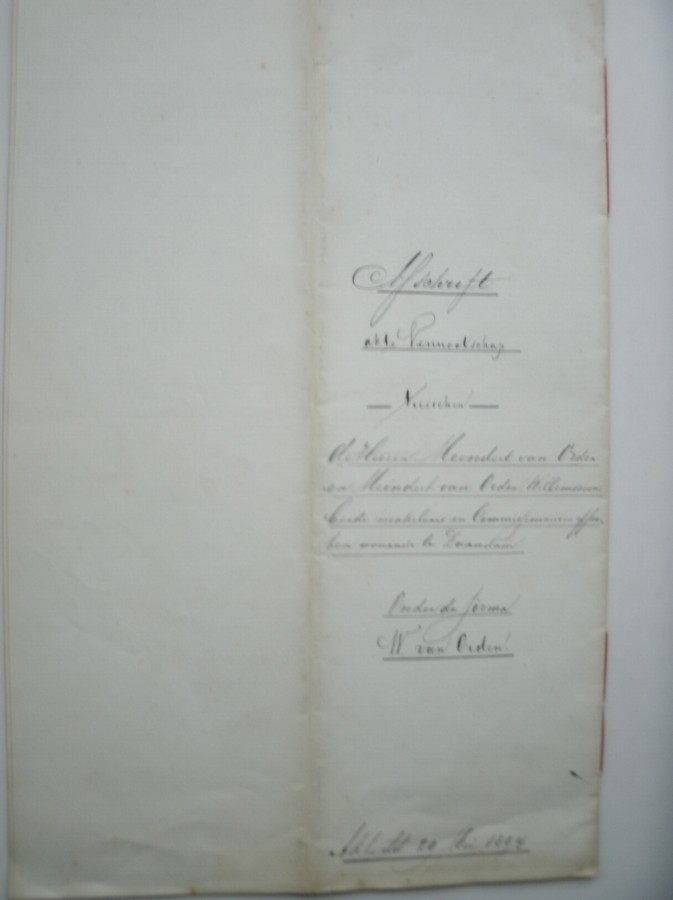 Afschrift
akte Vennootschap
Tusschen
de Heeren Meindert van Orden
en Meindert van Orden Willemszoon
beide makelaars en Commissionairs
wonende te Zaandam
Onder de firma
W van Orden
29 1897